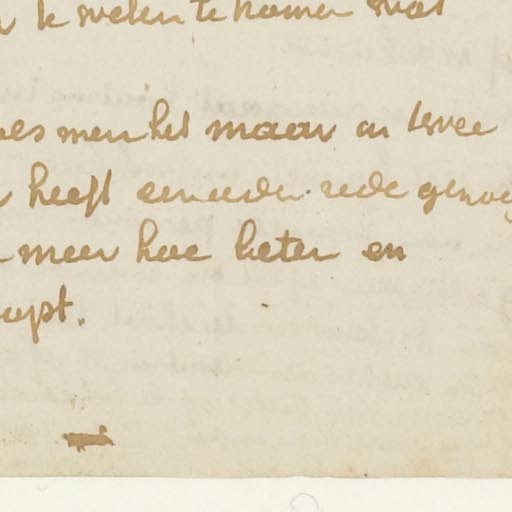 te weten te komen wat
men het maar en twee
heeft eenieder rede genoeg
meer hoe beter en